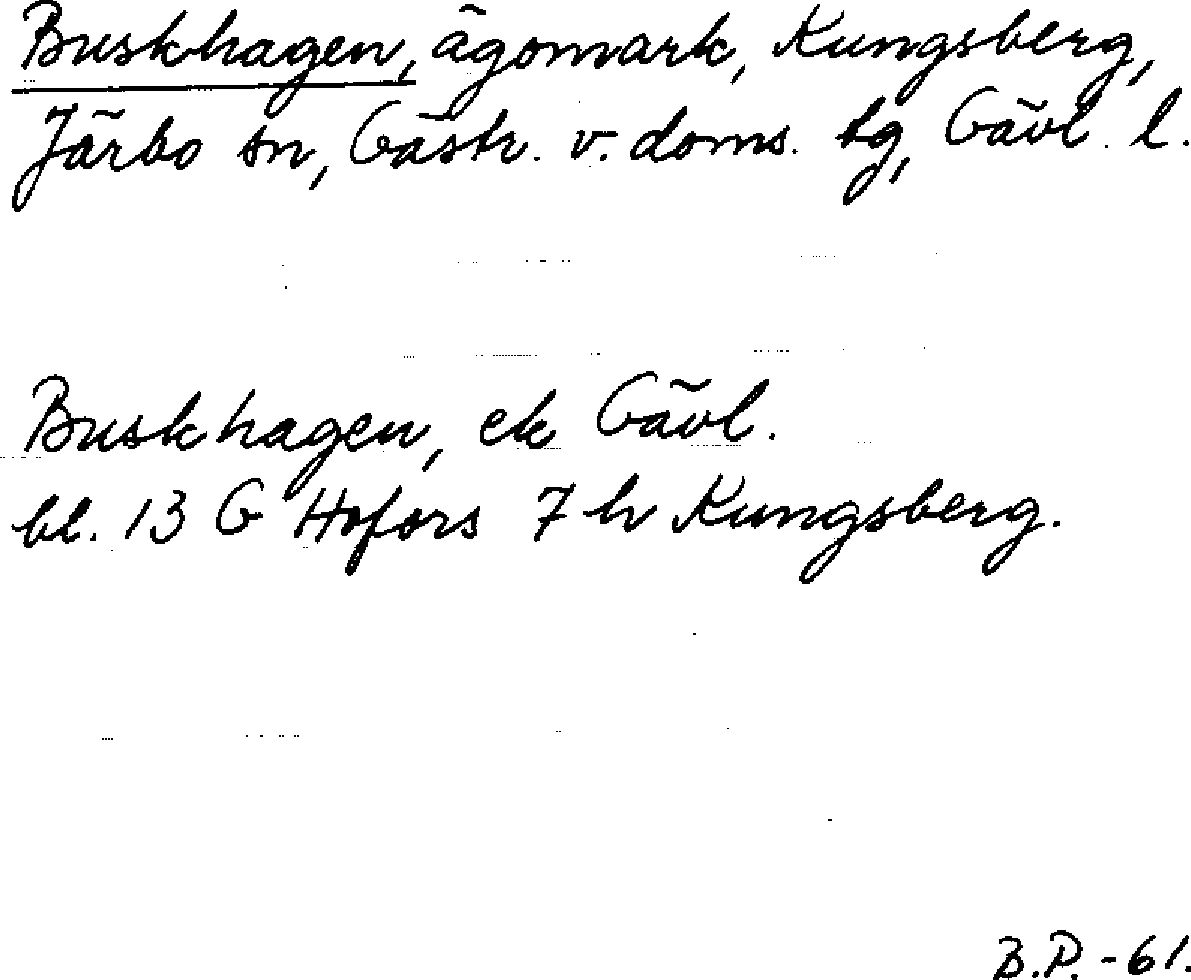 Buskhagen, ägomark, Kungsberg,
Järbo sn, Gästr. v. doms. tg, Gävl. l.
Buskhagen, ek Gävl.
bl. 13 G Hofors 7 h Kungsberg.
B.P. -61.